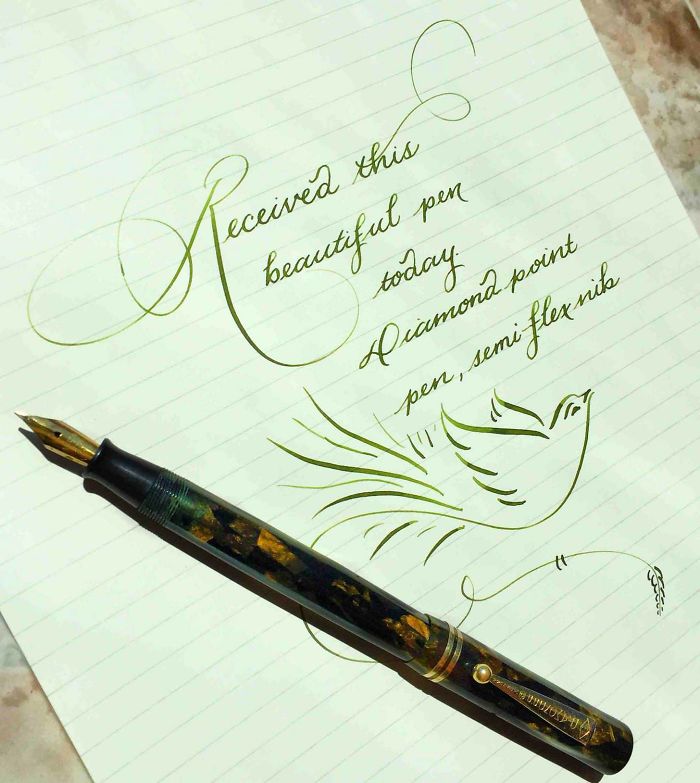 Received this
beautiful pen
today.
Diamond point
pen, semi flex nib